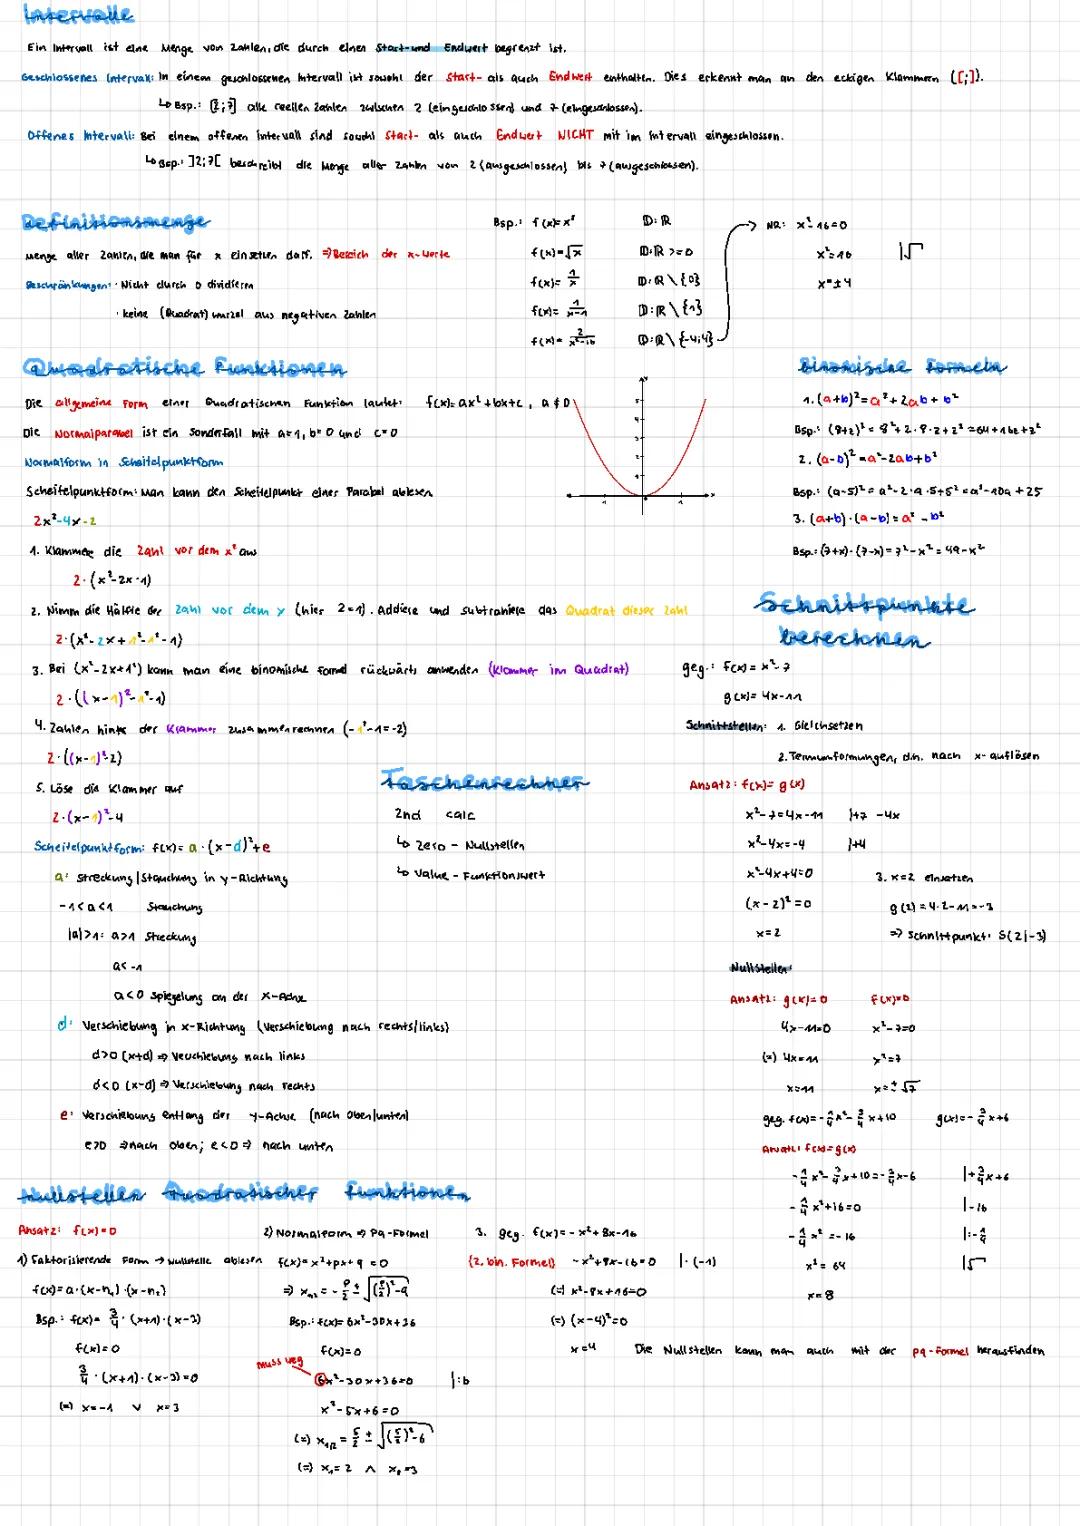 Intervalle
Ein Intervall ist eine Menge von Zahlen, die durch einen Start- und Endwert begrenzt ist.
Geschlossenes Intervall: In einem geschlossenen Intervall ist sowohl der Start- als auch Endwert enthalten. Dies erkennt man an den eckigen Klammern ([;]).
↳ Bsp.: [2;7] alle reellen Zahlen zwischen 2 (eingeschlossen) und 7 (eingeschlossen).
Offenes Intervall: Bei einem offenen Intervall sind sowohl Start- als auch Endwert NICHT mit im Intervall eingeschlossen.
↳ Bsp.: ]2;7[ beschreibt die Menge aller Zahlen von 2 (ausgeschlossen) bis 7 (ausgeschlossen).
Definitionsmenge
Menge aller Zahlen, die man für x einsetzen darf. ⇒ Bereich der x-Werte
Beschränkungen: · Nicht durch 0 dividieren
· keine (Quadrat) wurzel aus negativen Zahlen
Bsp.: f(x)=x² D: R
f(x)=√x D: R >=0
f(x)= 1/x D: R \ {0}
f(x)= 1/(x-1) D: R \ {1}
f(x)= 2/(x²-16) D: R \ {-4;4}
→ NR: x²-16=0
x²=16 |√
x=±4
Quadratische Funktionen
Die allgemeine Form einer Quadratischen Funktion lautet: f(x)=ax²+bx+c, a ≠ 0
Die Normalparabel ist ein Sonderfall mit a=1, b=0 und c=0
Normalform in Scheitelpunktform
Scheitelpunktform: Man kann den Scheitelpunkt einer Parabel ablesen
2x²-4x-2
1. Klammere die Zahl vor dem x² aus
2·(x²-2x-1)
2. Nimm die Hälfte der Zahl vor dem x (hier 2=1). Addiere und subtrahiere das Quadrat dieser Zahl
2·(x²-2x+1²-1²-1)
3. Bei (x²-2x+1²) kann man eine binomische formel rückwärts anwenden (Klammer im Quadrat)
2·((x-1)²-1²-1)
4. Zahlen hinter der Klammer zusammenrechnen (-1²-1=-2)
2·((x-1)²-2)
5. Löse die Klammer auf
2·(x-1)²-4
Scheitelpunktform: f(x)= a·(x-d)²+e
a: Streckung | Stauchung in y-Richtung
-1<a<1 Stauchung
|a|>1: a>1 Streckung
a<-1
a<0 Spiegelung an der x-Achse
d: Verschiebung in x-Richtung (Verschiebung nach rechts/links)
d>0 (x+d) ⇒ Verschiebung nach links
d<0 (x-d) ⇒ Verschiebung nach rechts
e: Verschiebung entlang der y-Achse (nach oben/unten)
e>0 ⇒ nach oben; e<0 ⇒ nach unten
Taschenrechner
2nd calc
↳ Zero - Nullstellen
↳ Value - Funktionswert
Binomische Formeln
1. (a+b)²=a²+2ab+b²
Bsp.: (8+z)² = 8²+2·8·z+z² = 64+16z+z²
2. (a-b)²=a²-2ab+b²
Bsp.: (a-5)² = a²-2·a·5+5² = a²-10a+25
3. (a+b)·(a-b)=a²-b²
Bsp.: (7+x)·(7-x)=7²-x²=49-x²
Schnittpunkte
berechnen
geg.: f(x)=x²-7
g(x)=4x-11
Schnittstellen: 1. Gleichsetzen
2. Termumformungen, d.h. nach x-auflösen
Ansatz: f(x)=g(x)
x²-7=4x-11 |+7 -4x
x²-4x=-4 |+4
x²-4x+4=0
(x-2)²=0
x=2
3. x=2 einsetzen
g(2)=4·2-11=-3
⇒ Schnittpunkt: S(2|-3)
Nullstellen:
Ansatz: g(x)=0 f(x)=0
4x-11=0 x²-7=0
(=) 4x=11 x²=7
x=11 x=±√7
geg. f(x)=-1/4x²-3/4x+10 g(x)=-3/4x+6
Ansatz: f(x)=g(x)
-1/4x²-3/4x+10=-3/4x-6 |+3/4x+6
-1/4x²+16=0 |-16
-1/4x²=-16 |:-1/4
x²=64 |√
x=8
Nullstellen Quadratischer Funktionen
Ansatz: f(x)=0
1) Faktorisierende Form → Nullstelle ablesen
f(x)=a·(x-n₁)·(x-n₂)
Bsp.: f(x)= 3/4·(x+1)·(x-3)
f(x)=0
3/4·(x+1)·(x-3)=0
(=) x=-1 ∨ x=3
2) Normalform ⇒ Pq-Formel
f(x)=x²+px+q=0
⇒ x₁,₂=-p/2±√((p/2)²-q)
Bsp.: f(x)=6x²-30x+36
f(x)=0
muss weg
6x²-30x+36=0 |:6
x²-5x+6=0
(=) x₁/₂=5/2±√((5/2)²-6)
(=) x₁=2 ∧ x₂=3
3. geg. f(x)=-x²+8x-16
(2. bin. Formel) -x²+8x-16=0 |·(-1)
(=) x²-8x+16=0
(=) (x-4)²=0
x=4 Die Nullstellen kann man auch mit der pq-Formel herausfinden